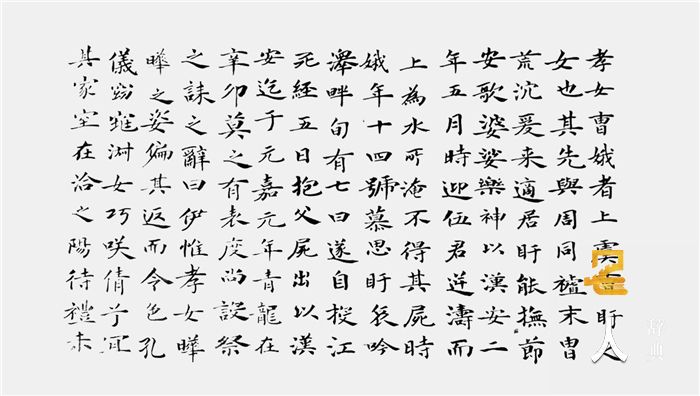 孝女曹娥者上虞盱
女也其先與周同禬末胄
荒沉爰来適居盱能撫節
安歌婆娑樂神以漢安二
年五月時迎伍君逆濤而
上為水所淹不得其屍時
娥年十四號慕思盱哀吟
澤畔旬有七日遂自投江
死經五日抱父屍出以漢
安迄于元嘉元年青龍在
辛卯莫之有表度尚設祭
之誄之辭曰伊惟孝女曄
曄之姿偏其返而令色孔
儀窈窕淑女巧咲倩兮宜
其家室在洽之陽待禮未